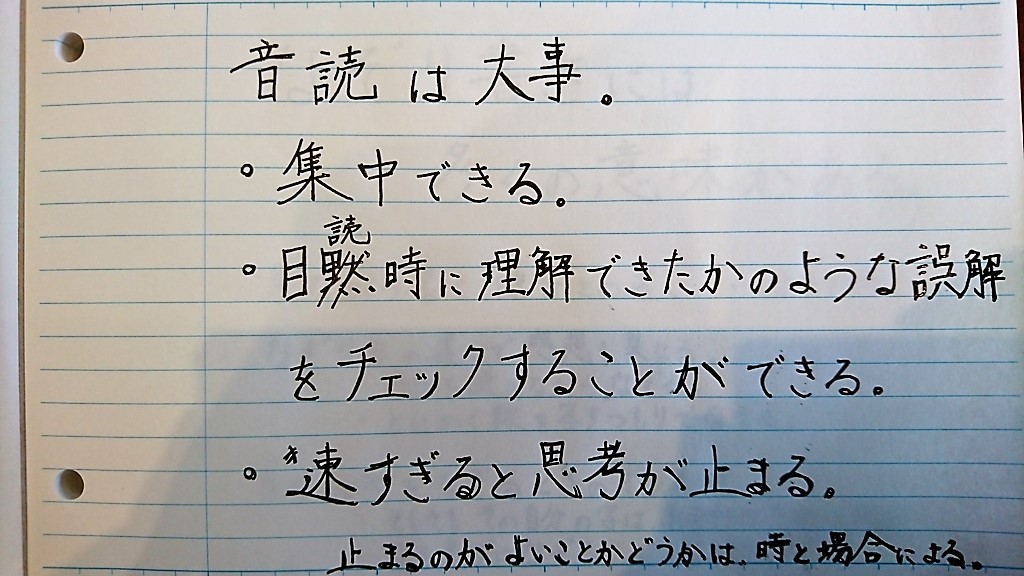 音読は大事。
。集中できる。
読
。目黙時に理解できたかのような誤解
をチェックすることができる。
。*速すぎると思考が止まる。
止まるのがよいことかどうかは、時と場合による。